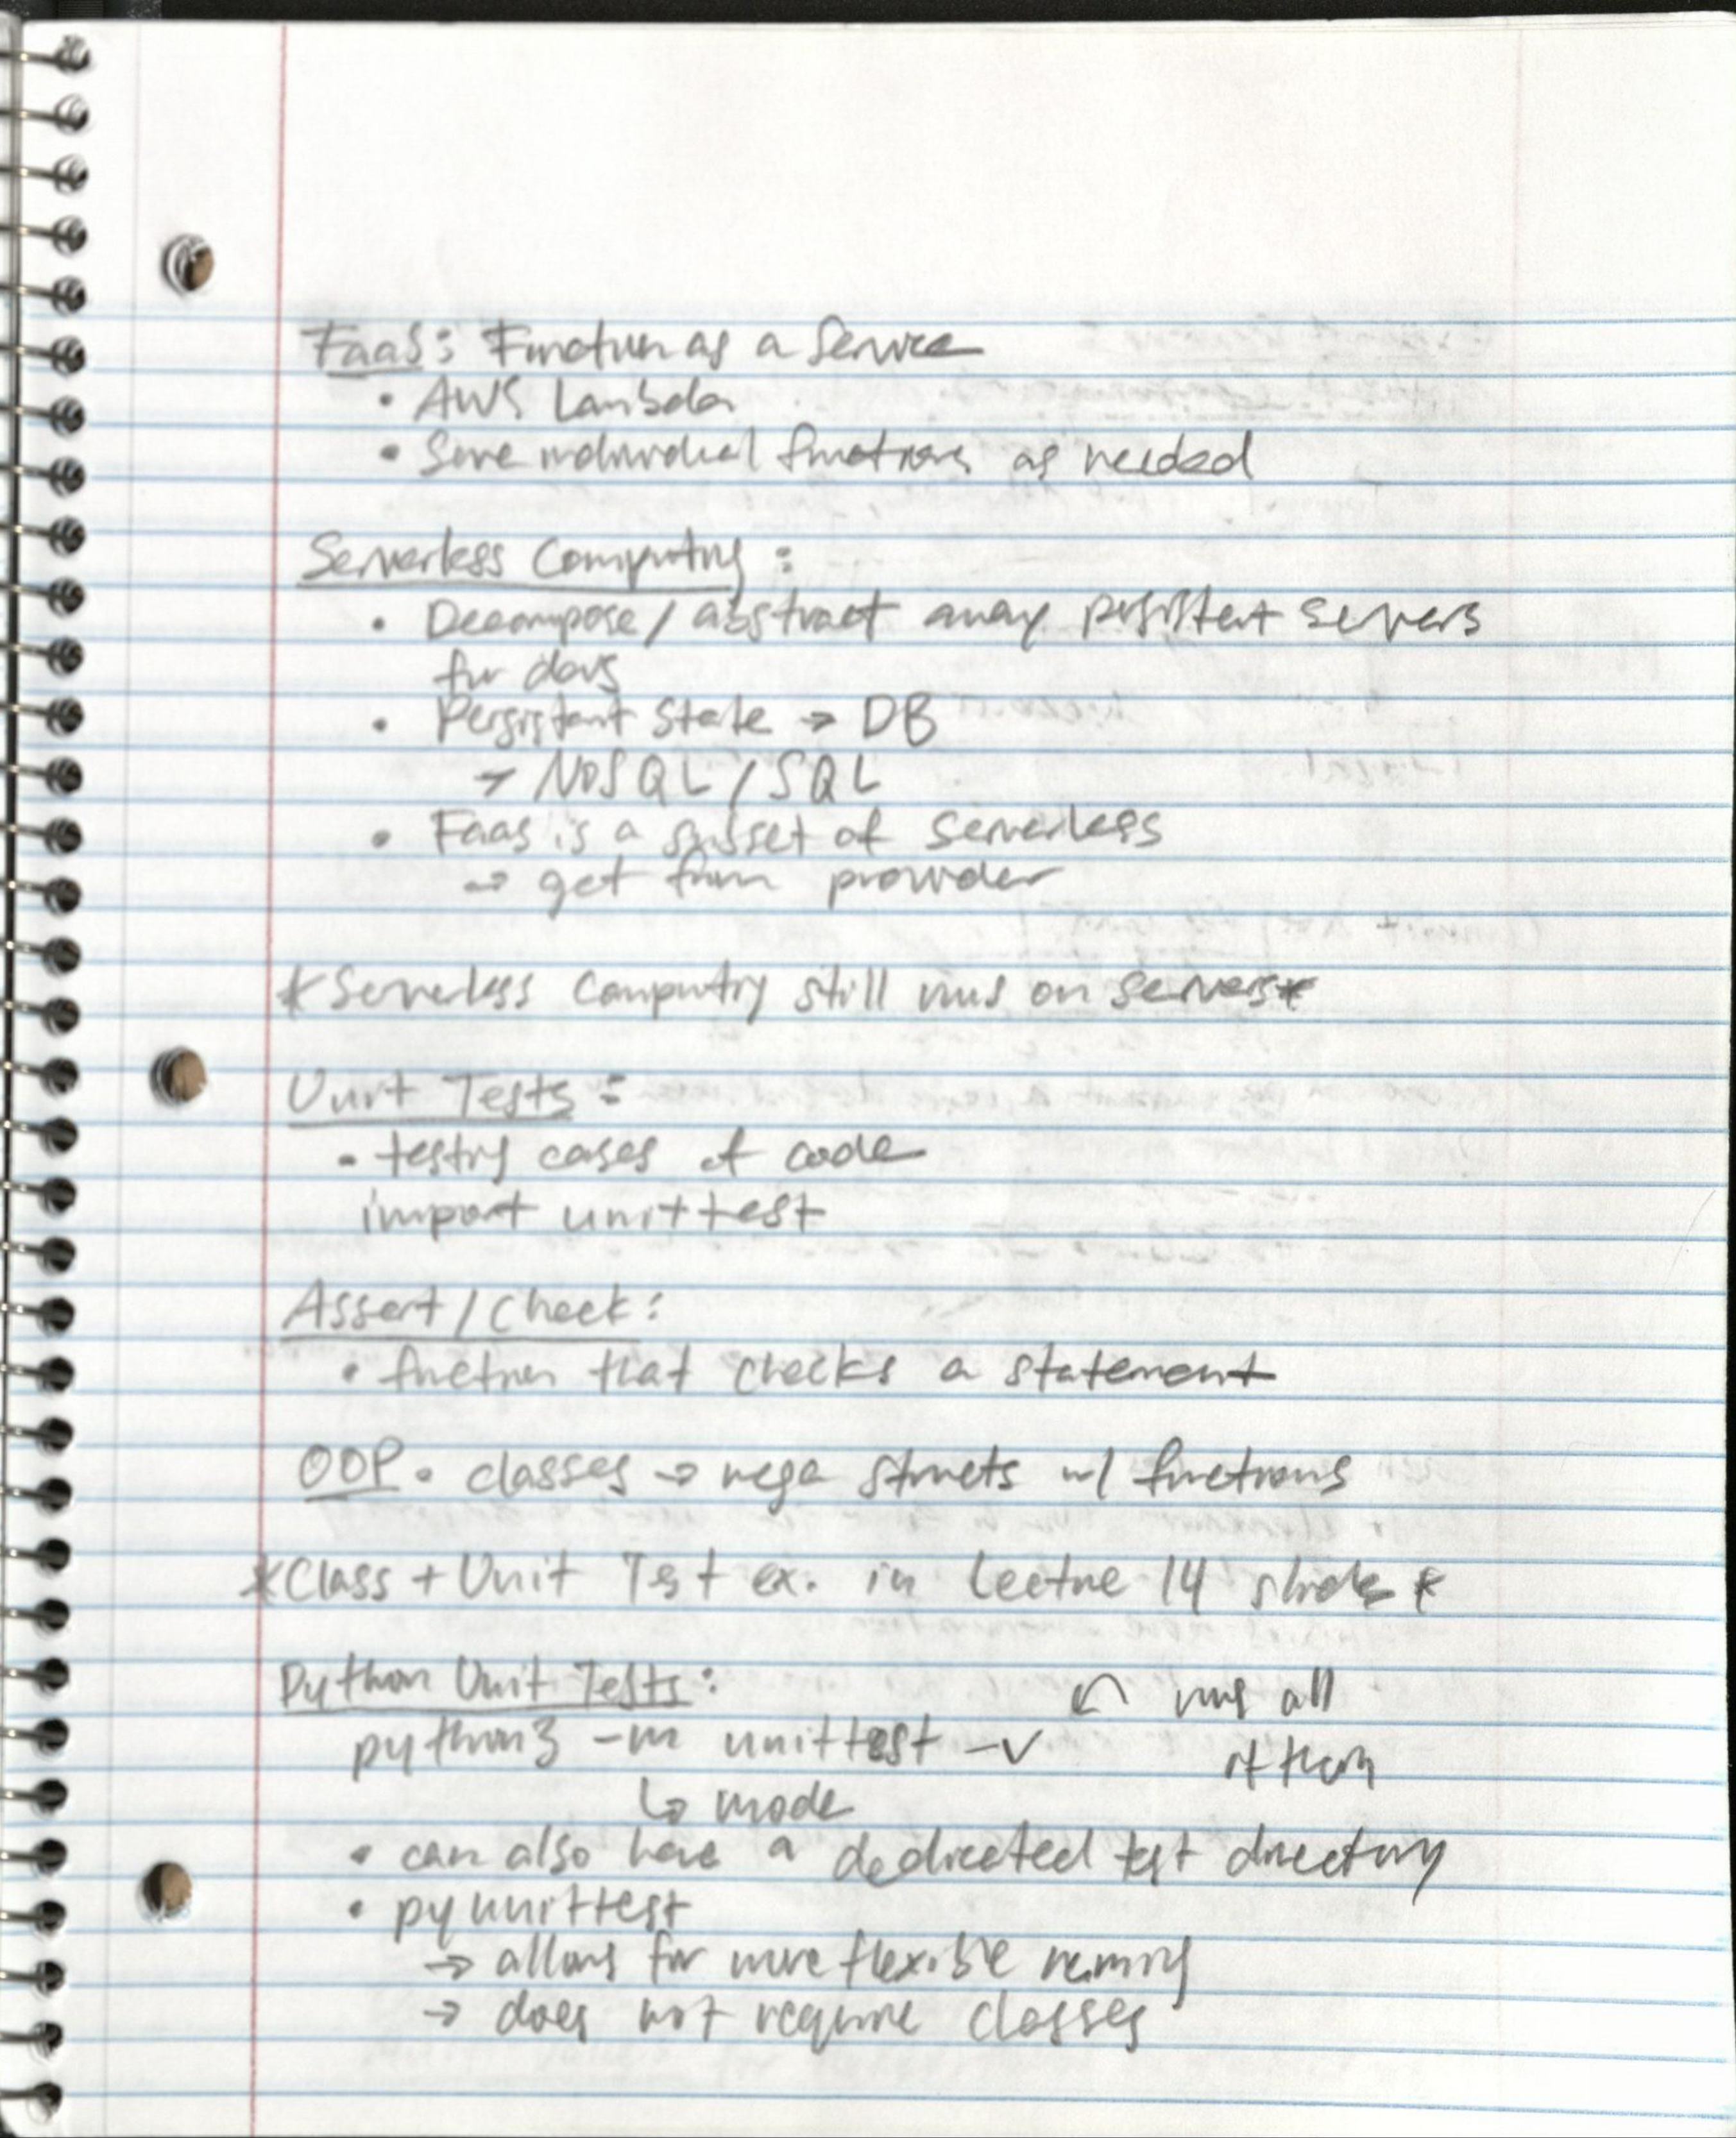 FaaS: Function as a Service
• AWS Lambda
• Serve individual functions as needed
Serverless Computing:
• Decompose / abstract away persistent servers
for devs
• Persistant State → DB
→ NoSQL / SQL
• Faas is a subset of Serverless
→ get from provider
*Serverless Computing still runs on servers*
Unit Tests:
• testing cases of code
import unittest
Assert / Check:
• function that checks a statement
OOP • classes → mega structs w/ functions
*Class + Unit Test ex. in Lecture 14 slides*
Python Unit Tests:
↶ runs all
python3 -m unittest -v
of them
↳ mode
• can also have a dedicated test directory
• pyunittest
→ allows for more flexible naming
→ does not require classes